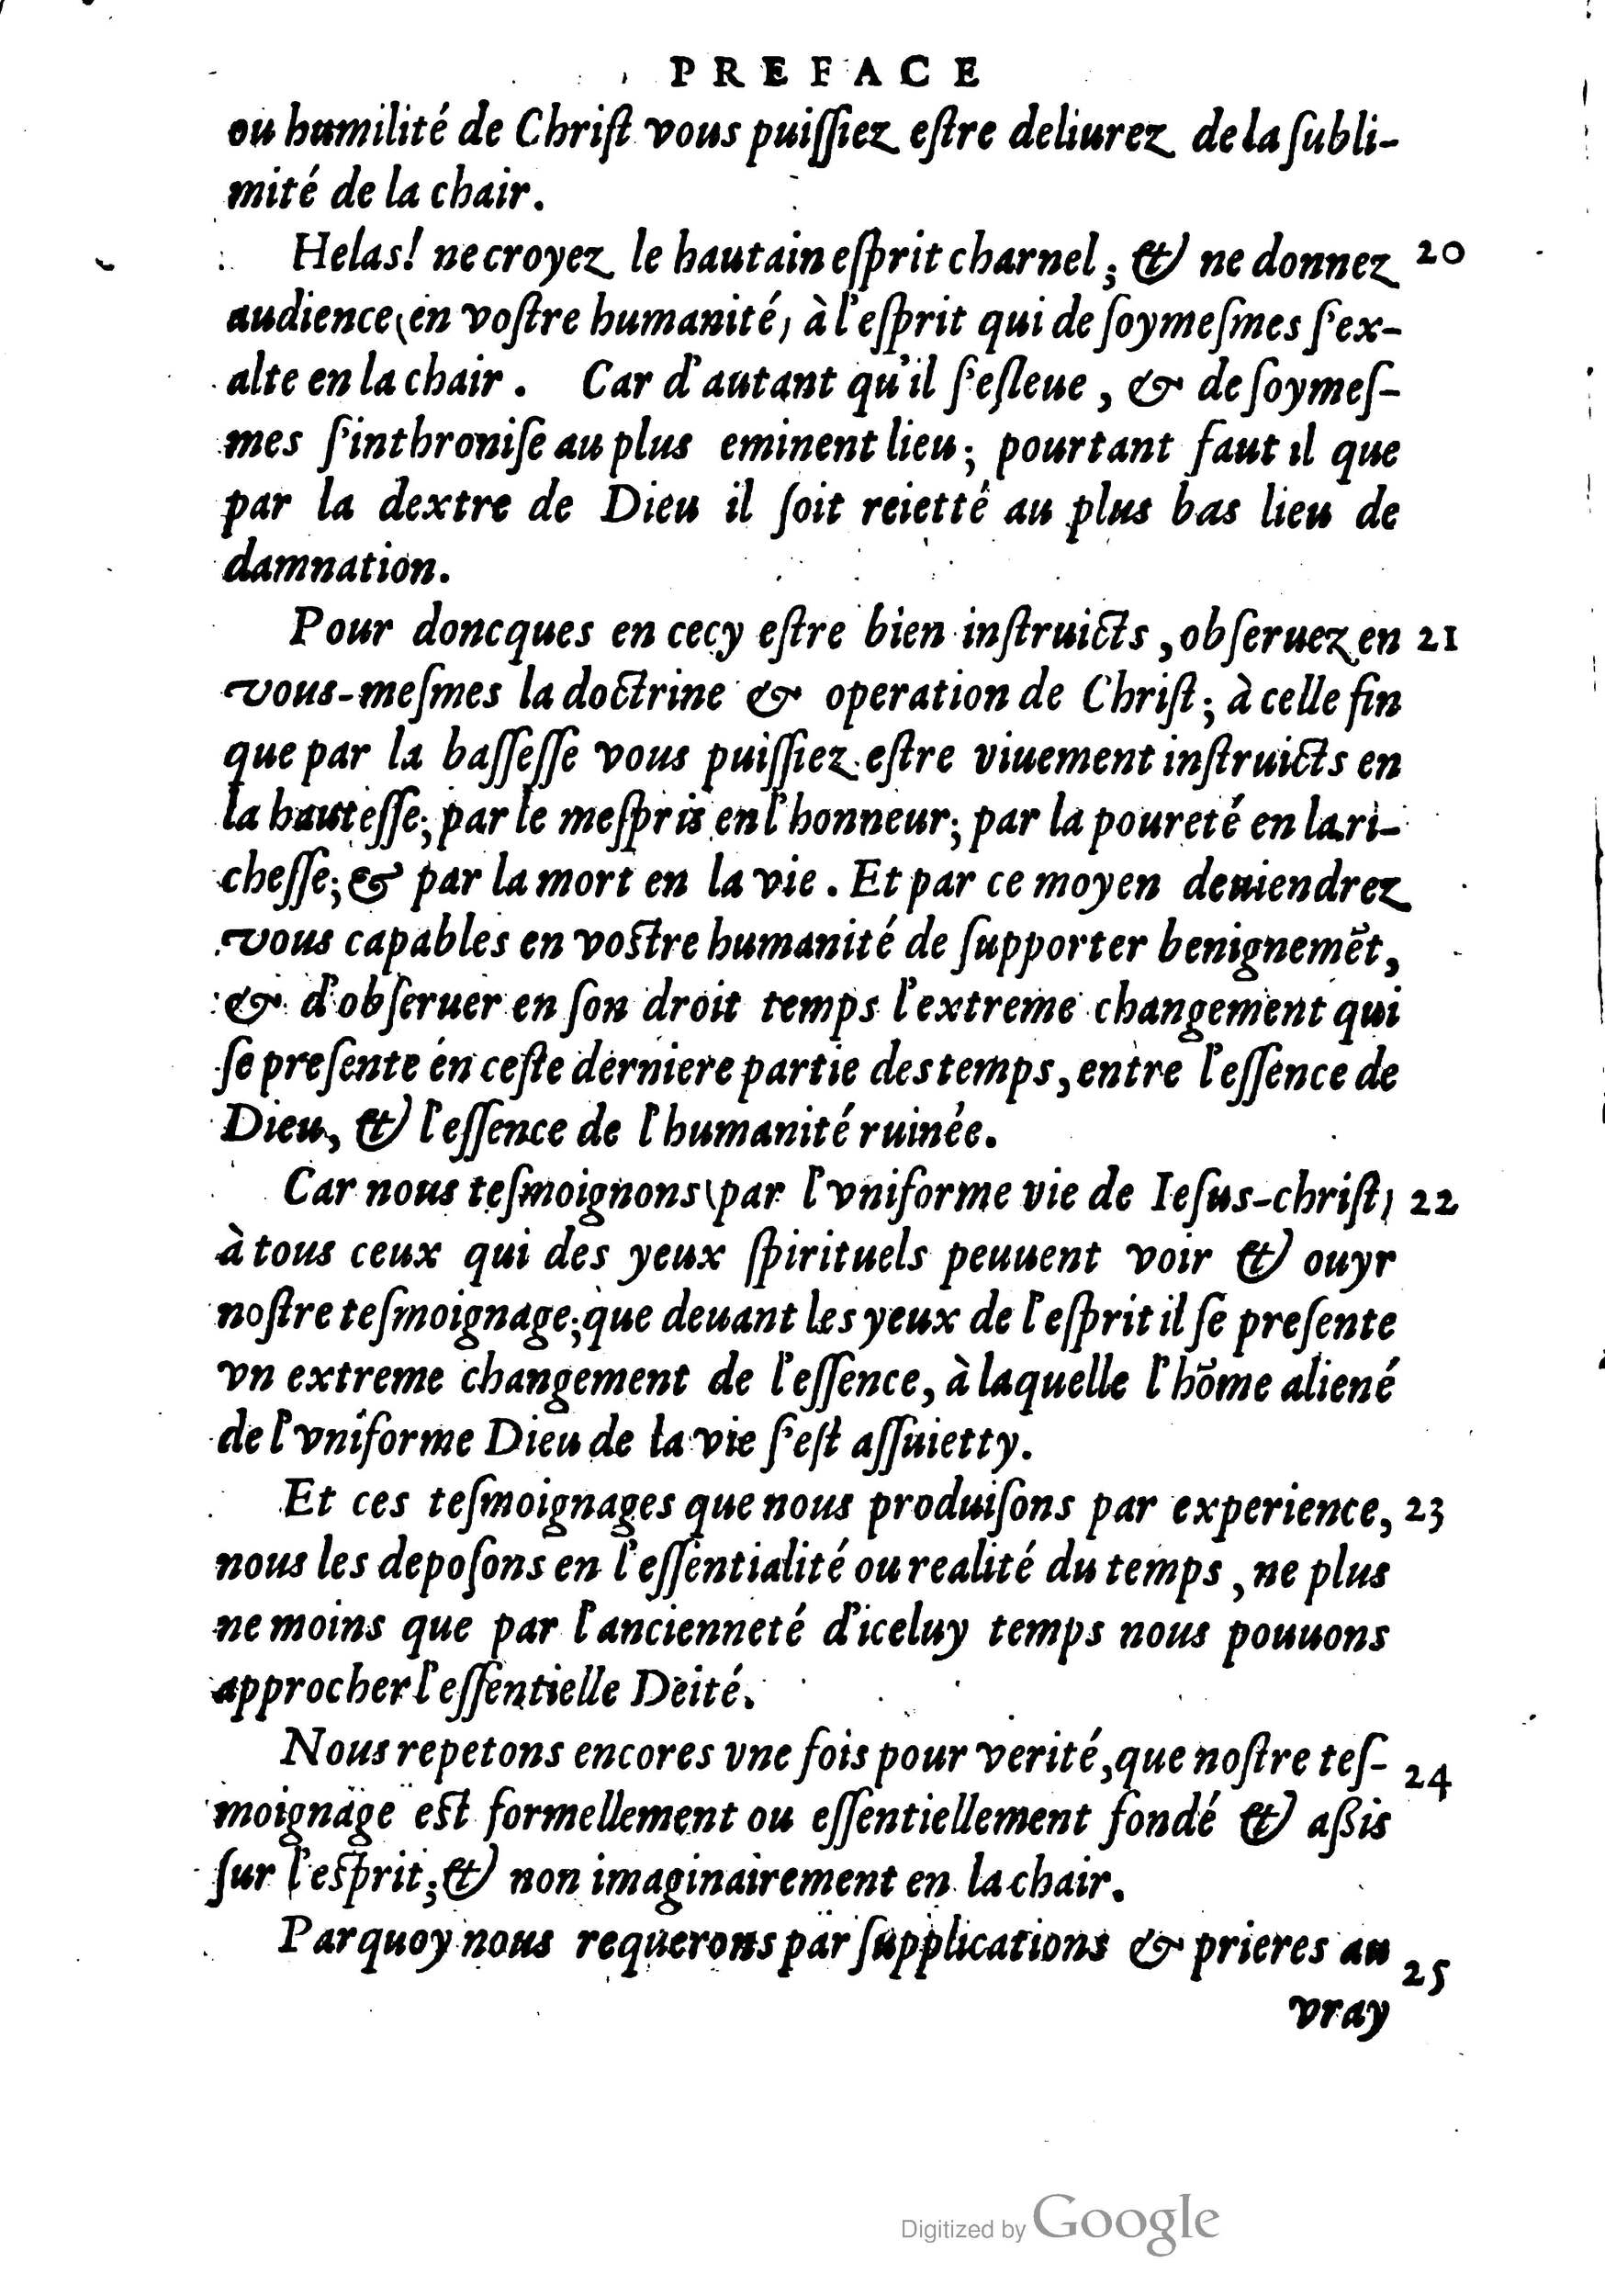 PREFACE
ou humilité de Chriſt vous puiſſiez eſtre deliurez de la ſubli-
mité de la chair.
Helas! ne croyez le hautain eſprit charnel; & ne donnez 20
audience (en voſtre humanité) à l'eſprit qui de ſoymeſmes ſ'ex-
alte en la chair. Car d'autant qu'il ſ'eſleue, & de ſoymeſ-
mes ſ'inthroniſe au plus eminent lieu; pourtant faut il que
par la dextre de Dieu il ſoit reietté au plus bas lieu de
damnation.
Pour doncques en cecy eſtre bien inſtruicts, obſeruez en 21
vous-meſmes la doctrine & operation de Chriſt; à celle fin
que par la baſſeſſe vous puiſſiez eſtre viuement inſtruicts en
la hauteſſe; par le meſpris en l'honneur; par la poureté en la ri-
cheſſe; & par la mort en la vie. Et par ce moyen deuiendrez
vous capables en voſtre humanité de ſupporter benignemẽt,
& d'obſeruer en ſon droit temps l'extreme changement qui
ſe preſente en ceſte derniere partie des temps, entre l'eſſence de
Dieu, & l'eſſence de l'humanité ruinée.
Car nous teſmoignons (par l'vniforme vie de Ieſus-chriſt) 22
à tous ceux qui des yeux ſpirituels peuuent voir & ouyr
noſtre teſmoignage; que deuant les yeux de l'eſprit il ſe preſente
vn extreme changement de l'eſſence, à laquelle l'hõme aliené
de l'vniforme Dieu de la vie ſ'eſt aſſuietty.
Et ces teſmoignages que nous produiſons par experience, 23
nous les depoſons en l'eſſentialité ou realité du temps, ne plus
ne moins que par l'ancienneté d'iceluy temps nous pouuons
approcher l'eſſentielle Deité.
Nous repetons encores vne fois pour verité, que noſtre teſ- 24
moignage eſt formellement ou eſſentiellement fondé & aßis
ſur l'eſprit; & non imaginairement en la chair.
Parquoy nous requerons par ſupplications & prieres au 25
vray
Digitized by Google